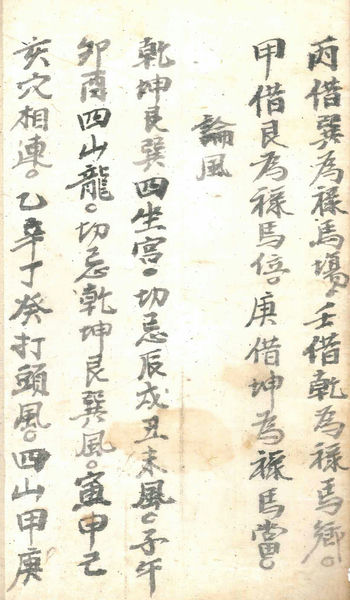 丙借巽為祿馬塲。壬借乾為祿馬鄉。
甲借艮為祿馬倍。庚借坤為祿馬當。
論風
乾坤艮巽四坐宮。切忌辰戌丑未風。子午
卯酉四山龍。切忌乾坤艮巽風。寅申己
亥穴相連。乙辛丁癸打頭風。四山甲庚